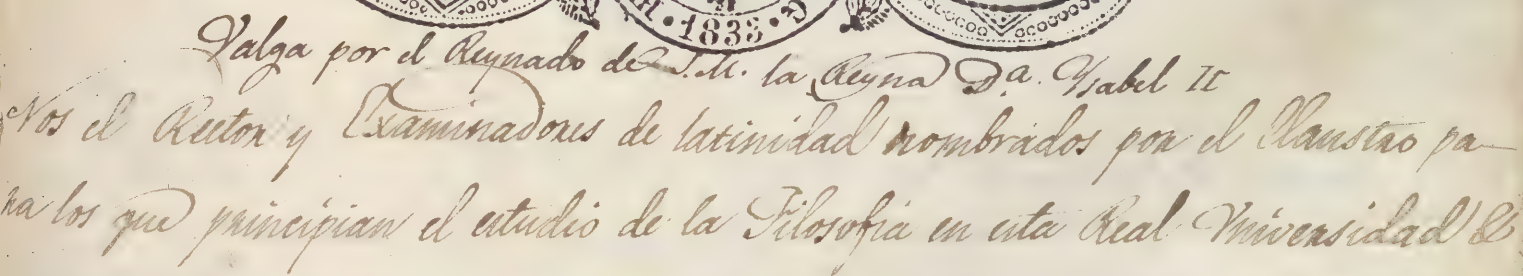 1833
Valga por el Reynado de S.M. la Reyna Dª. Ysabel II
Nos el Rector y Examinadores de latinidad nombrados por el Claustro pa-
ra los que principian el estudio de la Filosofia en esta Real Universidad